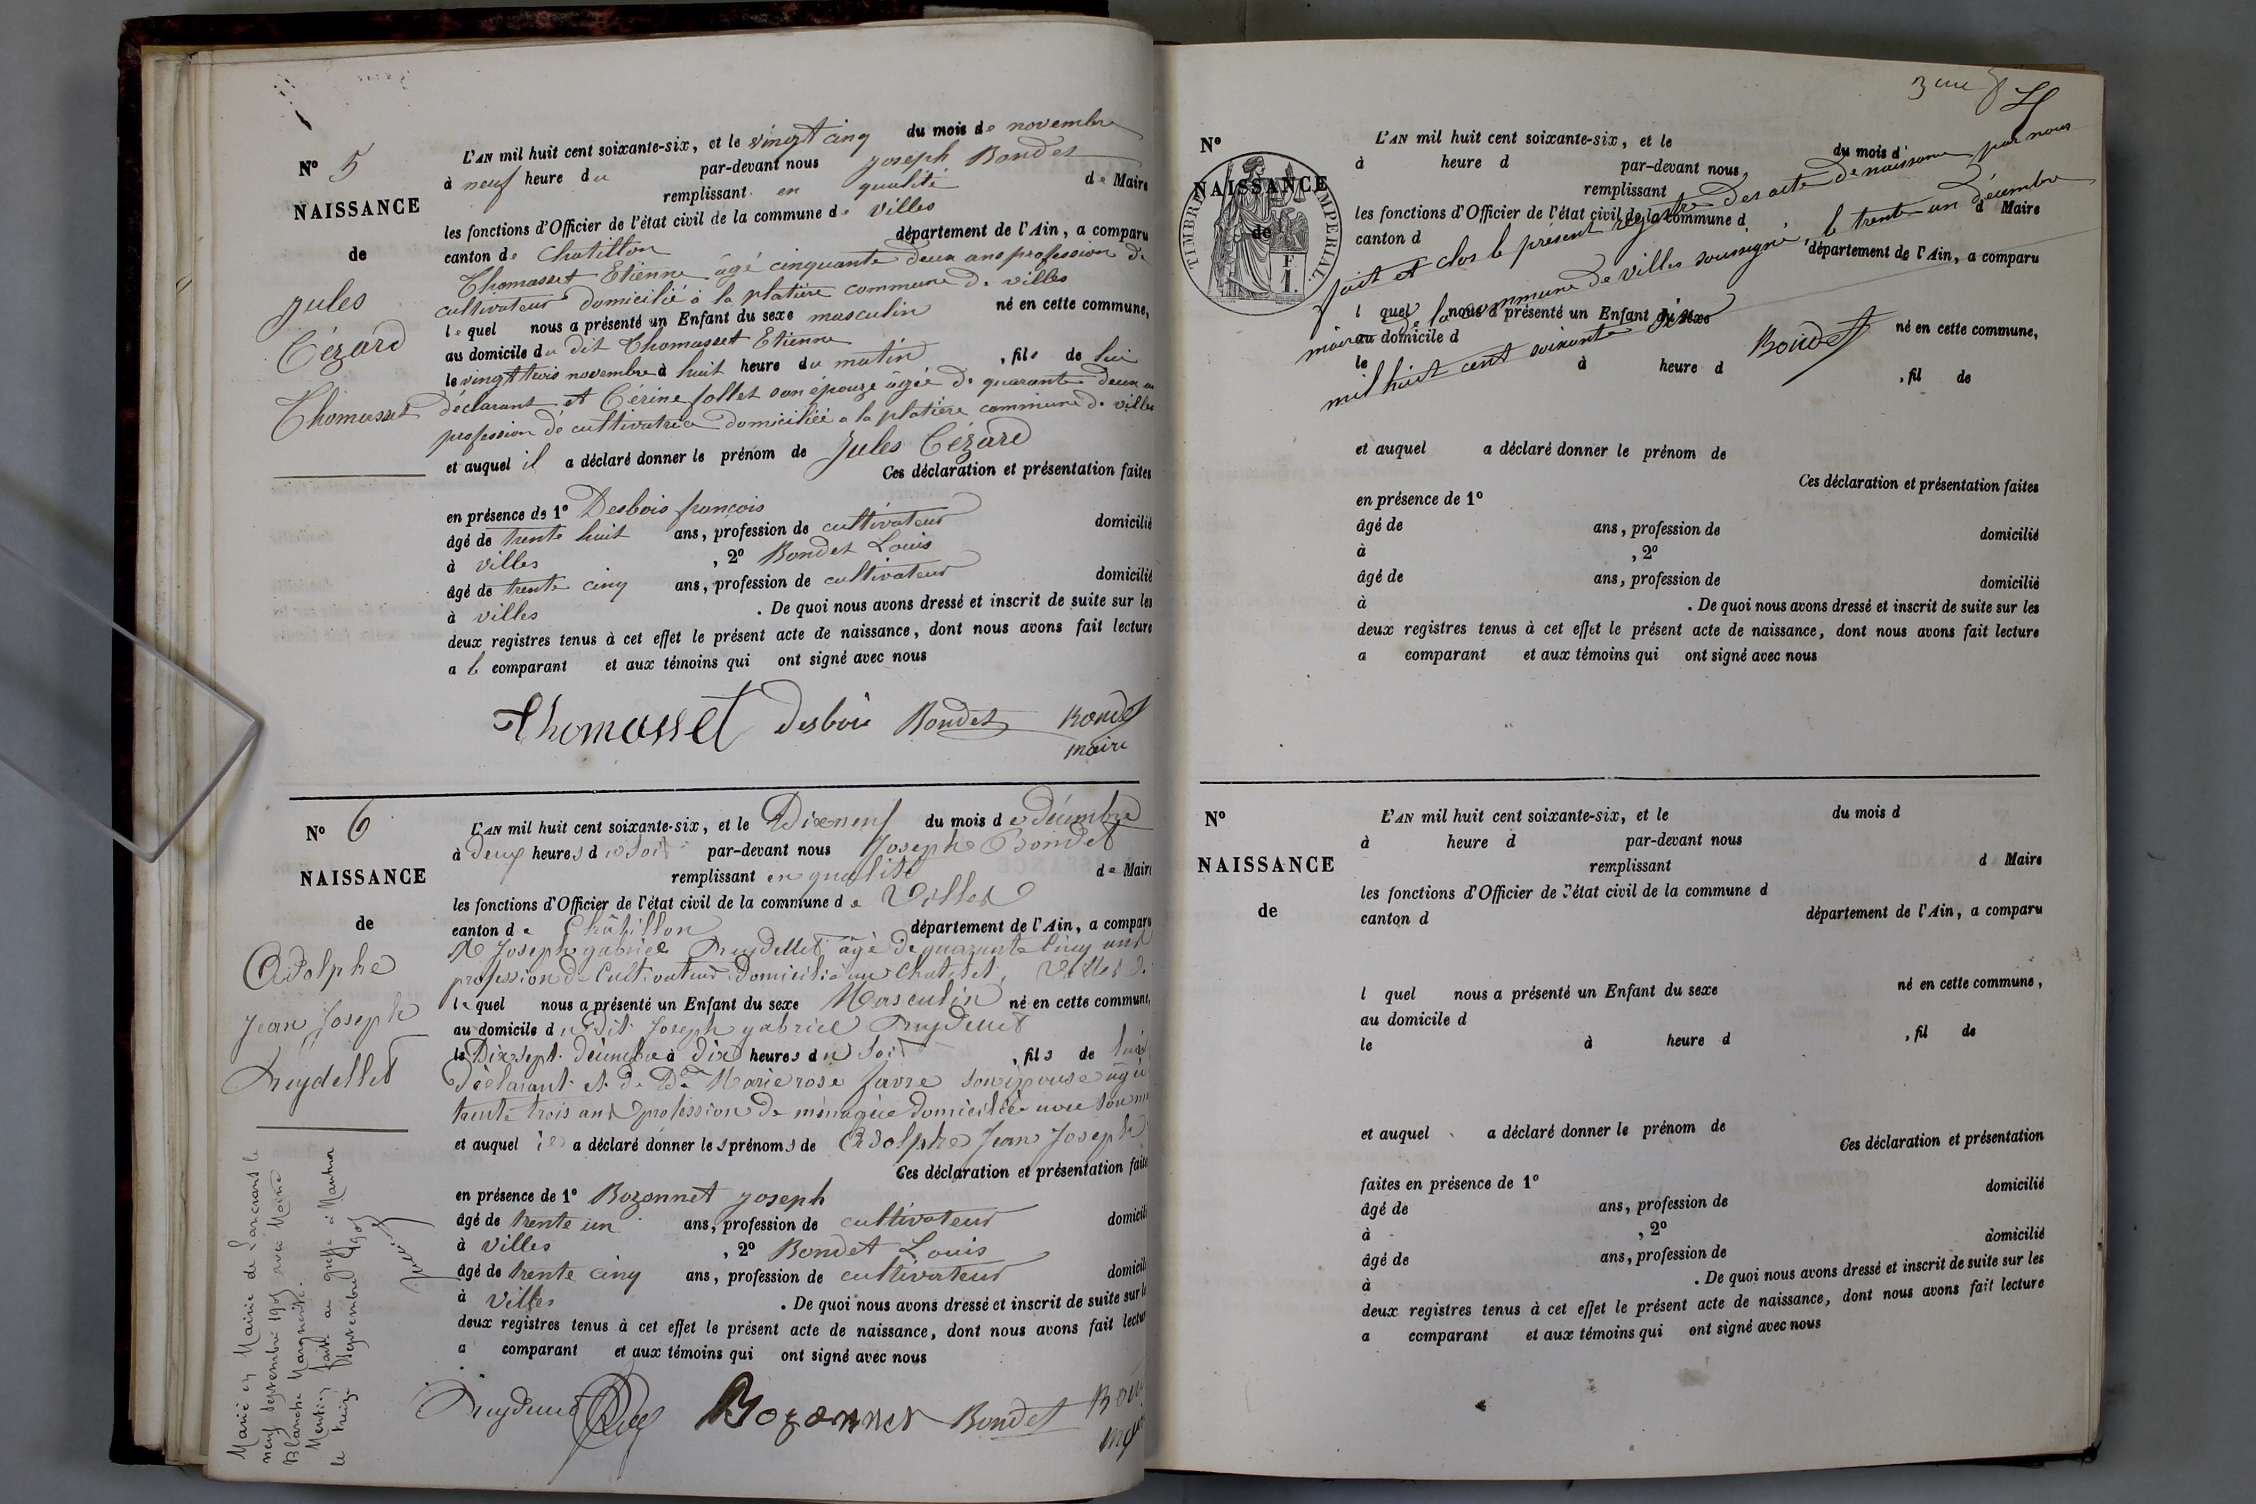 N° 5
NAISSANCE
de
Jules
Cézard
Thomasset
L'AN mil huit cent soixante-six, et le vingt cinq du mois de novembre
à neuf heure du par-devant nous Joseph Bondet
remplissant en qualité de Maire
les fonctions d'Officier de l'état civil de la commune de Villes
canton de Chatillon département de l'Ain, a comparu
Thomasset Etienne âgé cinquante deux ans profession de
cultivateur domicilié à la platière commune de villes
lequel nous a présenté un Enfant du sexe masculin né en cette commune,
au domicile du dit Thomasset Etienne
le vingt trois novembre à huit heure du matin, fils de lui
déclarant et Cérine follet son épouze âgée de quarante deux an
profession de cultivatrice domiciliée a la platière commune de villes
et auquel il a déclaré donner le prénom de Jules Cézard
Ces déclaration et présentation faites
en présence de 1° Desbois françois
âgé de trente huit ans, profession de cultivateur domicilié
à villes , 2° Bondet Louis
âgé de trente cinq ans, profession de cultivateur domicilié
à villes . De quoi nous avons dressé et inscrit de suite sur les
deux registres tenus à cet effet le présent acte de naissance, dont nous avons fait lecture
a le comparant et aux témoins qui ont signé avec nous
Thomasset desbois Bondet Bondet
maire
N° 6
NAISSANCE
de
Adolphe
Jean Joseph
Ruydellet
L'AN mil huit cent soixante-six, et le Dix neuf du mois de décembre
à deux heures du soir par-devant nous Joseph Bondet
remplissant en qualité de Maire
les fonctions d'Officier de l'état civil de la commune de Villes
canton de Châtillon département de l'Ain, a comparu
Joseph gabriel Ruydellet âgé de quarante cinq ans
profession de Cultivateur domicilié au Chatelet, Villes
lequel nous a présenté un Enfant du sexe Masculin né en cette commune,
au domicile du dit Joseph gabriel Ruydellet
le Dix sept décembre à dix heures du soir, fils de lui
déclarant et de De Marie rose favre son épouse âgée
trente trois ans profession de ménagère domiciliée avec son
et auquel il a déclaré donner les prénoms de Adolphe Jean Joseph
Ces déclaration et présentation faites
en présence de 1° Bozonnet Joseph
âgé de trente un ans, profession de cultivateur domicilié
à villes , 2° Bondet Louis
âgé de trente cinq ans, profession de cultivateur domicilié
à Villes . De quoi nous avons dressé et inscrit de suite sur les
deux registres tenus à cet effet le présent acte de naissance, dont nous avons fait lecture
a comparant et aux témoins qui ont signé avec nous
Bozonnet Bondet
Marié en Mairie de Lancrans le
neuf septembre 1905 avec
Blanche Marguerite.
Mention faite au greffe à Nantua
le treize septembre 1905
N°
NAISSANCE
de
TIMBRE IMPERIAL
1 F.
L'AN mil huit cent soixante-six, et le du mois d
à heure d par-devant nous
remplissant d Maire
les fonctions d'Officier de l'état civil de la commune d
canton d département de l'Ain, a comparu
fait et clos le présent registre des acte de naissance par nous
maire de la commune de villes soussigné, le trente un décembre
mil huit cent soixante six
Bondet
l quel nous a présenté un Enfant du sexe né en cette commune,
au domicile d
le à heure d , fil de
et auquel a déclaré donner le prénom de
Ces déclaration et présentation faites
en présence de 1°
âgé de ans, profession de domicilié
à , 2°
âgé de ans, profession de domicilié
à . De quoi nous avons dressé et inscrit de suite sur les
deux registres tenus à cet effet le présent acte de naissance, dont nous avons fait lecture
a comparant et aux témoins qui ont signé avec nous
N°
NAISSANCE
de
L'AN mil huit cent soixante-six, et le du mois d
à heure d par-devant nous
remplissant d Maire
les fonctions d'Officier de l'état civil de la commune d
canton d département de l'Ain, a comparu
l quel nous a présenté un Enfant du sexe né en cette commune,
au domicile d
le à heure d , fil de
et auquel a déclaré donner le prénom de
Ces déclaration et présentation
faites en présence de 1° domicilié
âgé de ans, profession de
à , 2° domicilié
âgé de ans, profession de
à . De quoi nous avons dressé et inscrit de suite sur les
deux registres tenus à cet effet le présent acte de naissance, dont nous avons fait lecture
a comparant et aux témoins qui ont signé avec nous